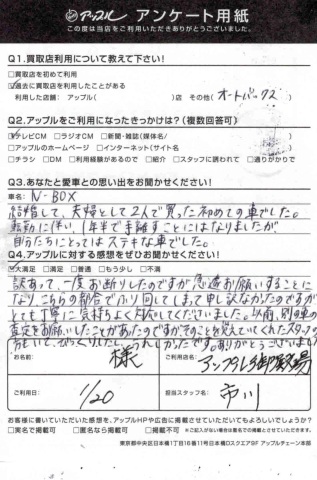 アップル アンケート用紙
この度は当店をご利用いただきありがとうございました。
Q1.買取店利用について教えて下さい!
□買取店を初めて利用
☑過去に買取店を利用したことがある
利用した店舗: アップル( )店 その他(オートバックス)
Q2.アップルをご利用になったきっかけは?(複数回答可)
☑テレビCM □ラジオCM □新聞・雑誌(媒体名/ )
□アップルのホームページ □インターネット(サイト名 )
□チラシ □DM □利用経験があるので □紹介 □スタッフに誘われて □通りがかりで
Q3.あなたと愛車との思い出をお聞かせください!
車名: N-BOX
結婚して、夫婦として2人で買った初めての車でした。
転勤に伴い、1年半で手離すことにはなりましたが
自分たちにとってはステキな車でした。
Q4.アップルに対する感想をぜひお聞かせください!
☑大満足 □満足 □普通 □もう少し □不満
訳あって、一度お断りしたのですが急遽お願いすることに
なりこちらの都合でふり回してしまって申し訳なかったのですが
とても丁寧に気持ちよく対応してくださいました。以前、別の車の
査定をお願いしたことがあったのですがそのことを覚えていてくれたスタッフの
方もいて、びっくりしたし、うれしかったです。ありがとうございました
お名前: 様
ご利用店名: アップル御殿場
ご利用日: 1/20
担当スタッフ名: 市川
お客様に書いていただいた感想を、アップルHPや広告に掲載させていただいてもよろしいでしょうか?
□実名で掲載可 □匿名なら掲載可 □掲載不可 ※ご記入がない場合は匿名での掲載とさせていただきます。
東京都中央区日本橋1丁目18番11号日本橋Dスクエア5F アップルチェーン本部